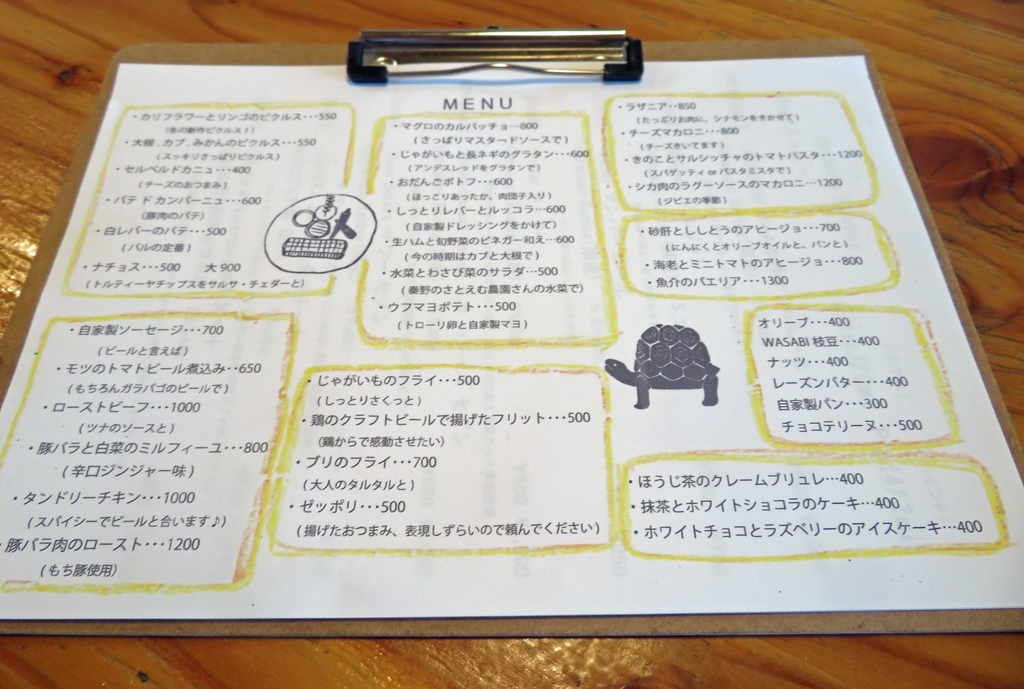 MENU
・カリフラワーとリンゴのピクルス・・・550
(冬の新作ピクルス！)
・大根、カブ、みかんのピクルス・・・550
(スッキリさっぱりピクルス)
・セルベルドカニュ・・・400
(チーズのおつまみ)
・パテ ド カンパーニュ・・・600
(豚肉のパテ)
・白レバーのパテ・・・500
(バルの定番)
・ナチョス・・・500 大 900
(トルティーヤチップスをサルサ・チェダーと)
・マグロのカルパッチョ・・・800
(さっぱりマスタードソースで)
・じゃがいもと長ネギのグラタン・・・600
(アンデスレッドをグラタンで)
・おだんごポトフ・・・600
(ほっこりあったか、肉団子入り)
・しっとりレバーとルッコラ・・・600
(自家製ドレッシングをかけて)
・生ハムと旬野菜のビネガー和え・・・600
(今の時期はカブと大根で)
・水菜とわさび菜のサラダ・・・500
(秦野のさとえむ農園さんの水菜で)
・ウフマヨポテト・・・500
(トローリ卵と自家製マヨ)
・ラザニア・・850
(たっぷりお肉に、シナモンをきかせて)
・チーズマカロニ・・・800
(チーズきいてます)
・きのことサルシッチャのトマトパスタ・・・1200
(スパゲッティ or パスタミスタで)
・シカ肉のラグーソースのマカロニ・・・1200
(ジビエの季節)
・砂肝とししとうのアヒージョ・・・700
(にんにくとオリーブオイルと、パンと)
・海老とミニトマトのアヒージョ・・・800
・魚介のパエリア・・・1300
・自家製ソーセージ・・・700
(ビールと言えば)
・モツのトマトビール煮込み・・650
(もちろんガラパゴのビールで)
・ローストビーフ・・・1000
(ツナのソースと)
・豚バラと白菜のミルフィーユ・・・800
(辛口ジンジャー味)
・タンドリーチキン・・・1000
(スパイシーでビールと合います♪)
・豚バラ肉のロースト・・・1200
(もち豚使用)
・じゃがいものフライ・・・500
(しっとりさくっと)
・鶏のクラフトビールで揚げたフリット・・・500
(鶏からで感動させたい)
・ブリのフライ・・・700
(大人のタルタルと)
・ゼッポリ・・・500
(揚げたおつまみ、表現しずらいので頼んでください)
オリーブ・・・400
WASABI 枝豆・・・400
ナッツ・・・400
レーズンバター・・・400
自家製パン・・・300
チョコテリーヌ・・・500
・ほうじ茶のクレームブリュレ・・・400
・抹茶とホワイトショコラのケーキ・・・400
・ホワイトチョコとラズベリーのアイスケーキ・・・400